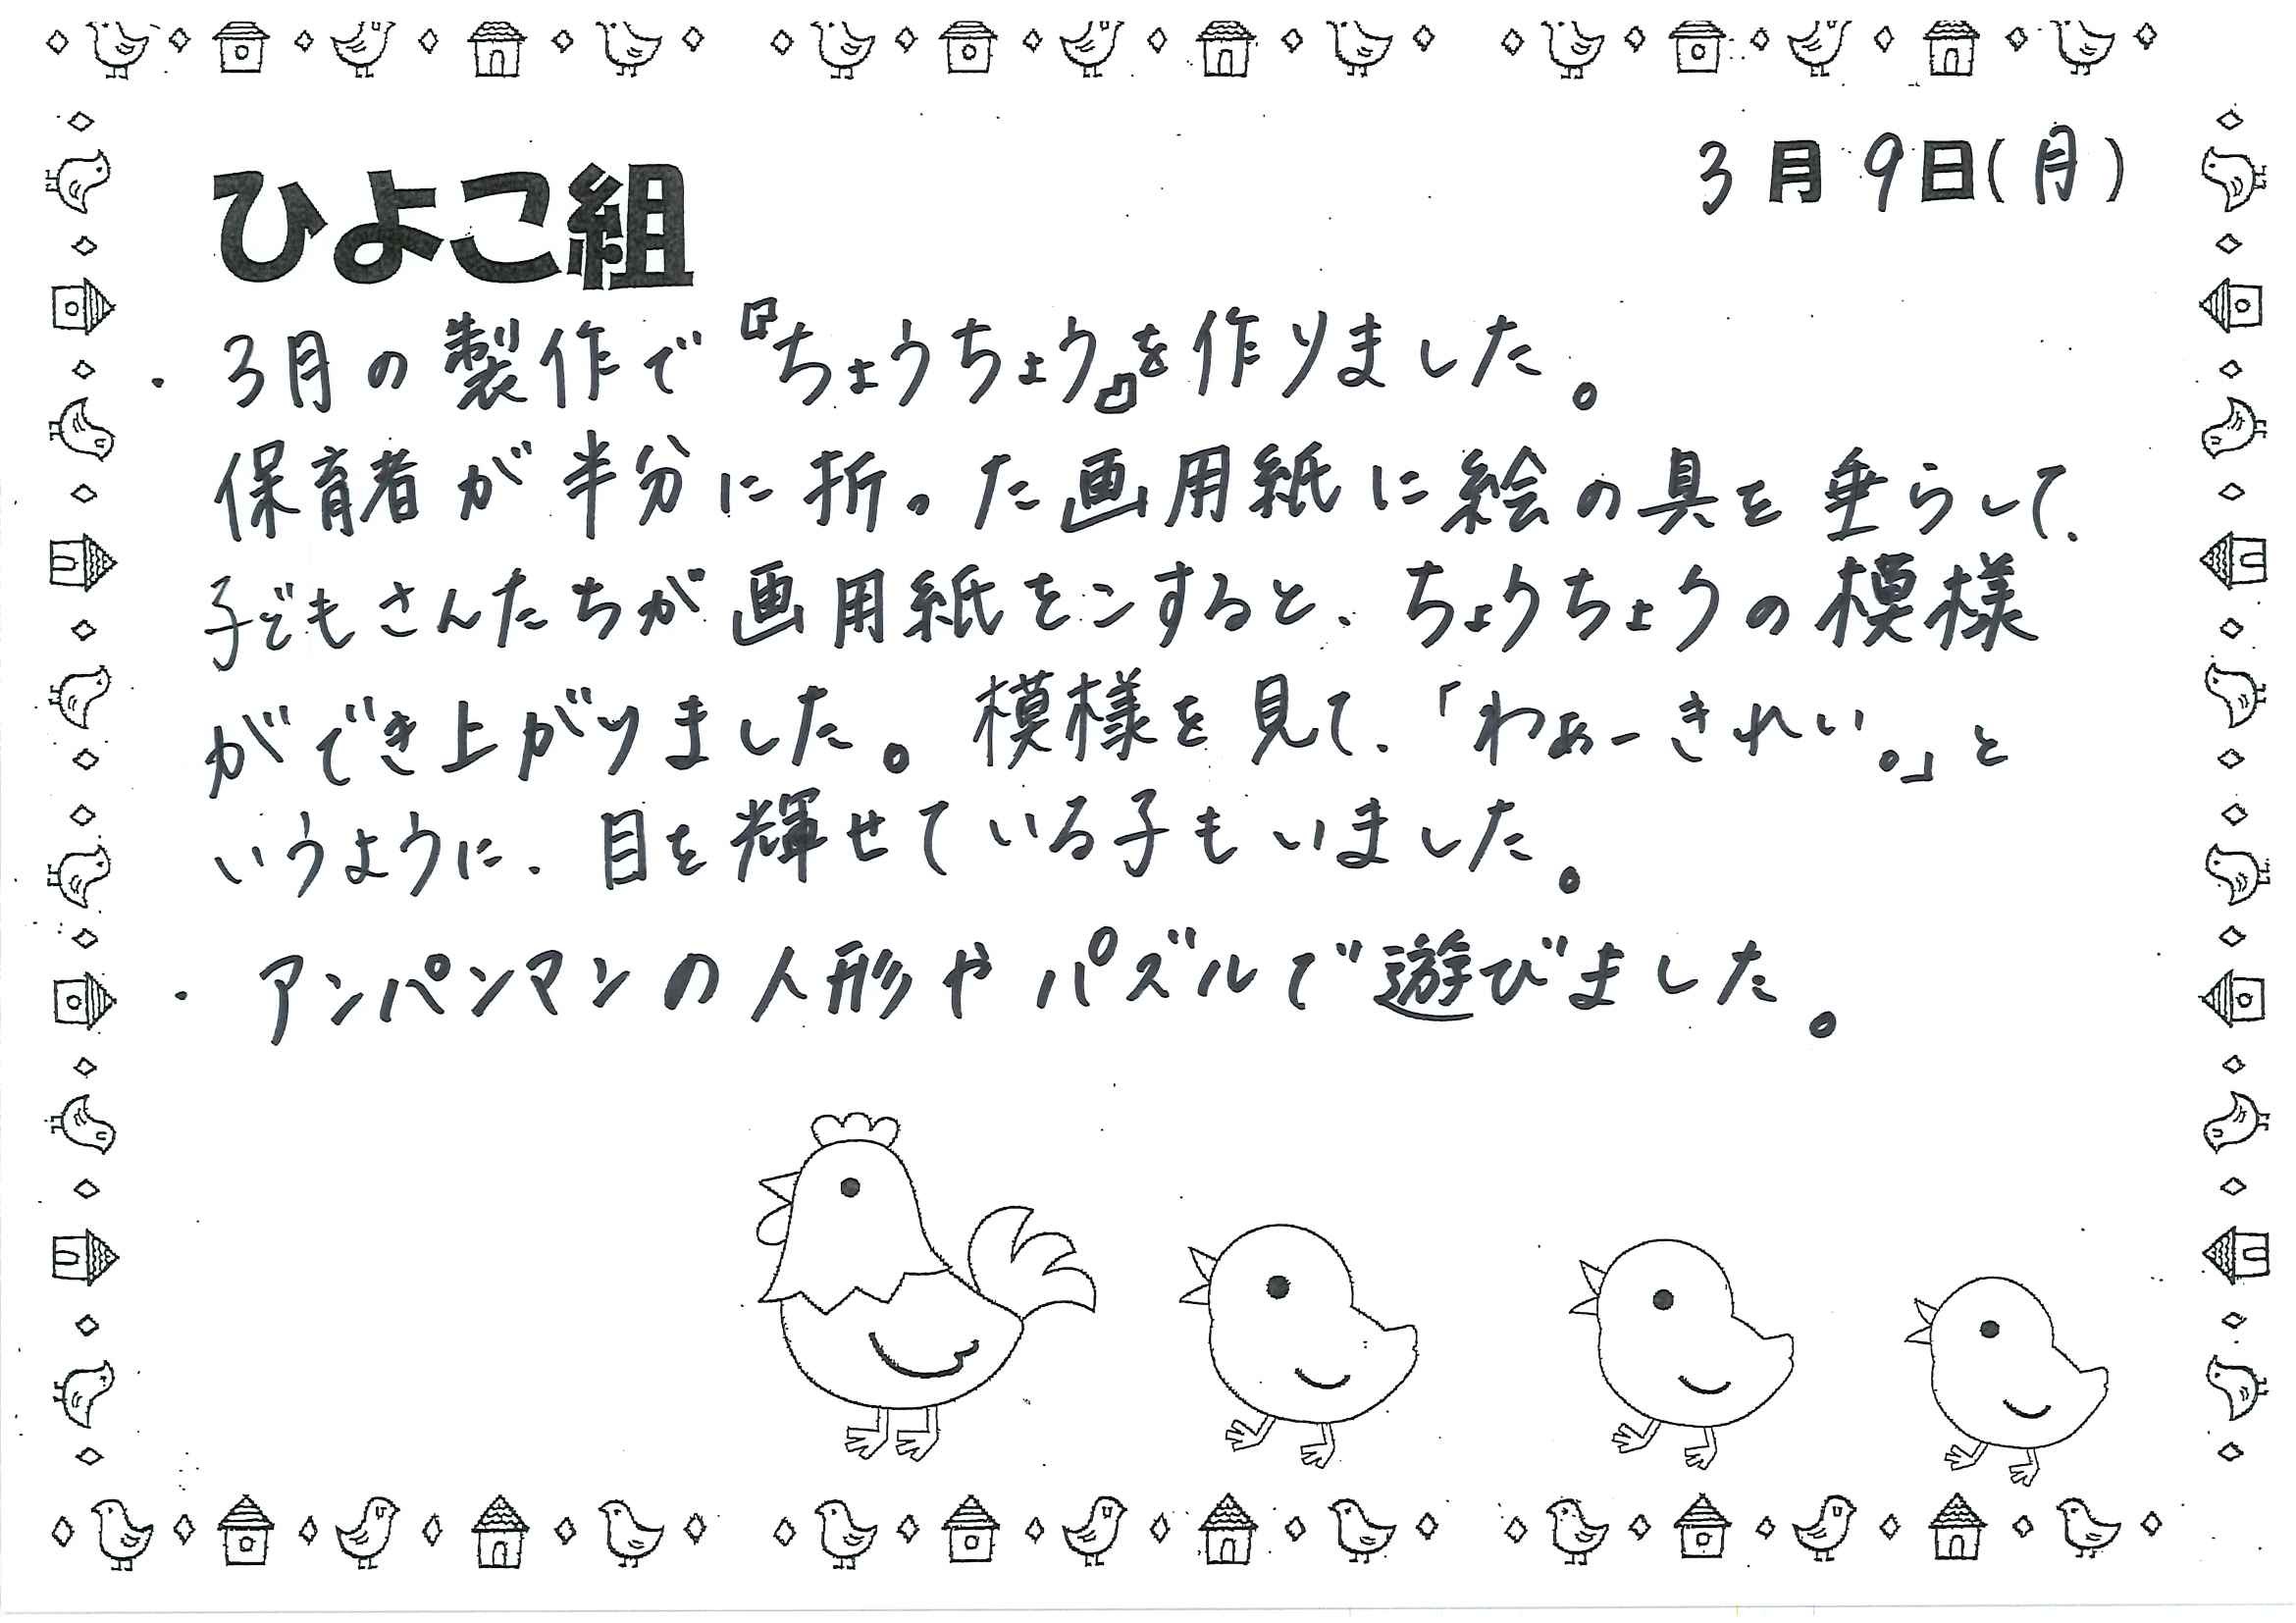 3月9日(月)
ひよこ組
・3月の製作で『ちょうちょう』を作りました。
保育者が半分に折った画用紙に絵の具を垂らして、
子どもさんたちが画用紙をこすると、ちょうちょうの模様
ができ上がりました。模様を見て、「わぁーきれい。」と
いうように、目を輝せている子もいました。
・アンパンマンの人形やパズルで遊びました。